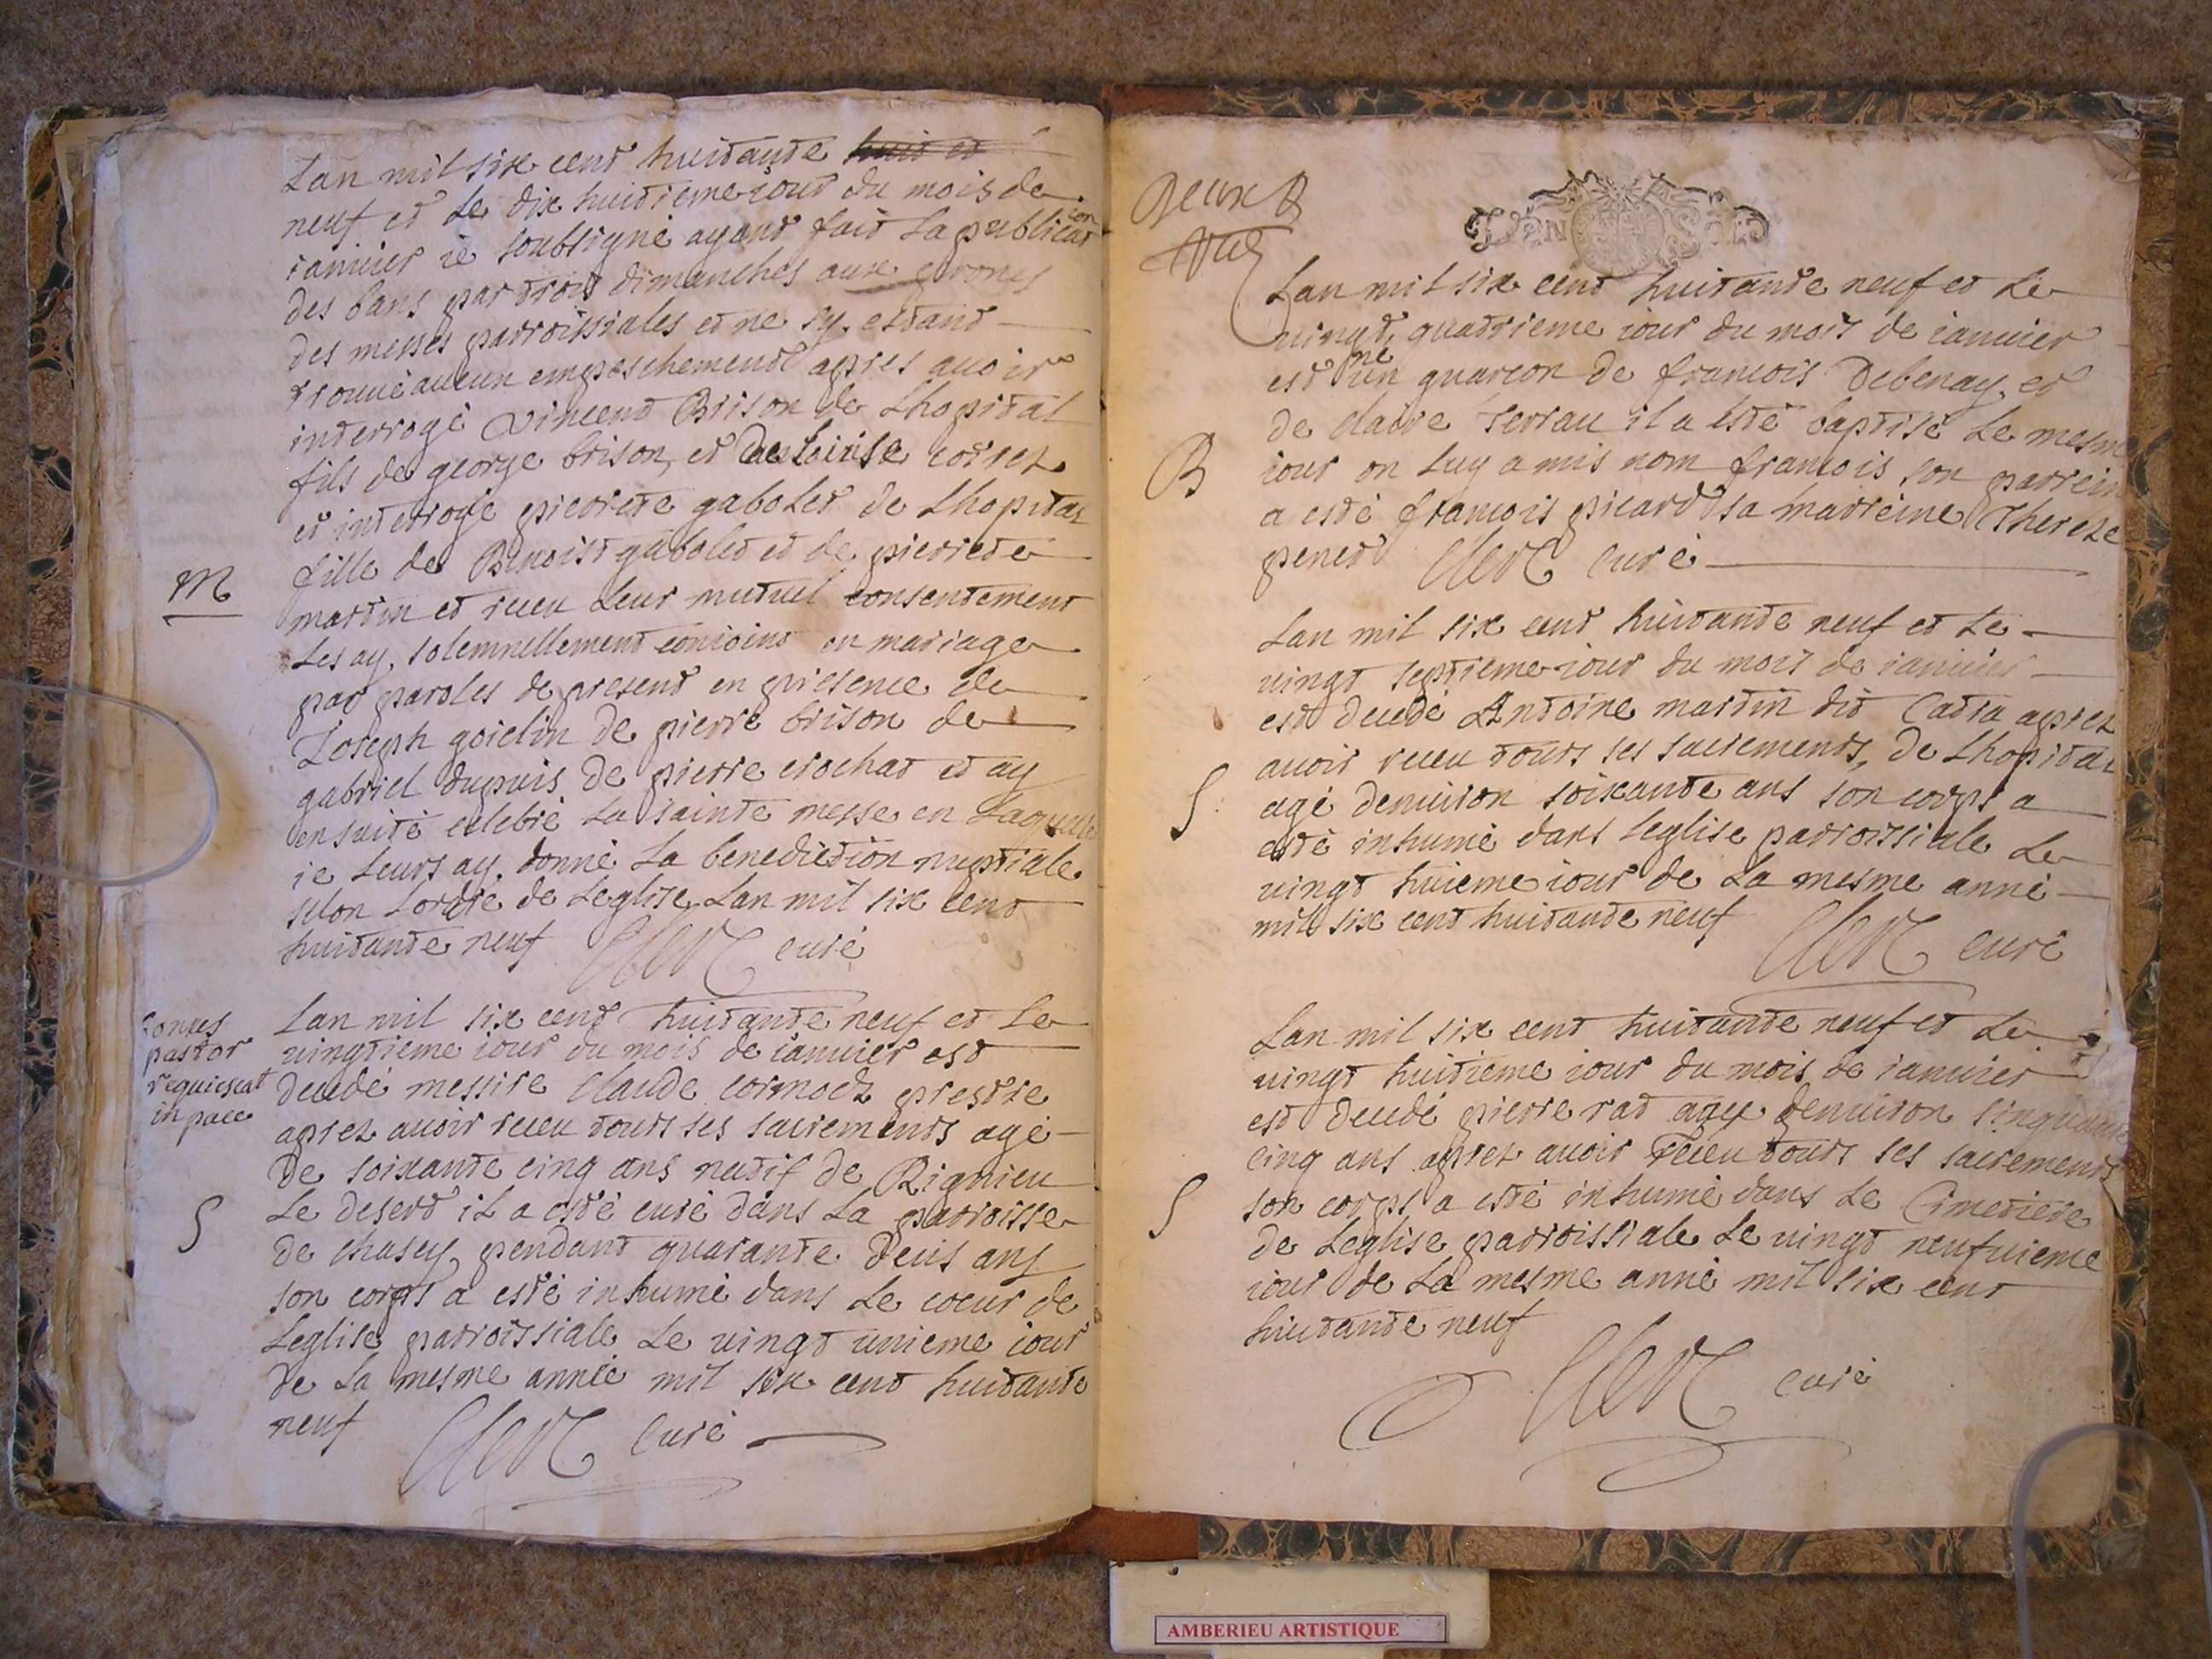 Lan mil six cent huitante huit et
neuf et le dix huitieme iour du mois de
ianuier ie soubsigné ayant fait la publication
des bans par trois dimanches aux prones
des messes parroissiales et ne sy estant
trouué aucun empeschement apres auoir
interrogé Vincent Brison de Lhopital
fils de george brison et de
et interrogé pierrete gabolet de Lhopital
fille de Benoist gabolet et de pierrete
M
martin et receu leur mutuel consentement
Les ay solemnellement conioint en mariage
par paroles de present en presence de
Joseph goiclin de pierre brison de
gabriel dupuis de pierre crochat et ay
ensuite celebré la sainte messe en laquelle
ie leurs ay donné la benediction nuptiale
selon lordre de leglise Lan mil six cent
huitante neuf Clerc curé
pastor
requiescat
in pace
Lan mil six cent huitante neuf et le
uingtieme iour du mois de ianuier est
decedé messire Claude cormoct prestre
aprez auoir receu touts ses sacrements agé
De soixante cinq ans natif de Rignieu
S
Le desert il a esté curé dans la parroisse
de chasey pendant quarante deus ans
son corps a esté inhumé dans le coeur de
Leglise parroissiale le uingt unieme iour
de la mesme année mil six cent huitante
neuf Clerc Curé
Deux s
GEN
Lan mil six cent huitante neuf et le
uingt quatrieme iour du mois de ianuier
est né un guarcon de francois Debenay et
de claire Terrau il a esté baptisé le mesm
B
iour on luy a mis nom francois son parrein
a esté francois picard sa marreine Thereze
penet Clerc curé
Lan mil six cent huitante neuf et le
uingt septieme iour du mois de ianuier
est decedé Antoine martin dit Catra aprez
auoir receu touts ses sacrements, de Lhopital
S
agé denuiron soixante ans son corps a
esté inhumé dans leglise parroissiale le
uingt huieme iour de la mesme anné
mil six cent huitante neuf
Clerc curé
Lan mil six cent huitante neuf et le
uingt huitieme iour du mois de ianuier
est decedé pierre rat agé denuiron sinquante
cinq ans aprez auoir receu touts ses sacrements
S
son corps a esté inhumé dans le Cimetiere
de Leglise parroissiale le uingt neufuieme
iour de la mesme anné mil six cent
huitante neuf
Clerc curé
AMBERIEU ARTISTIQUE